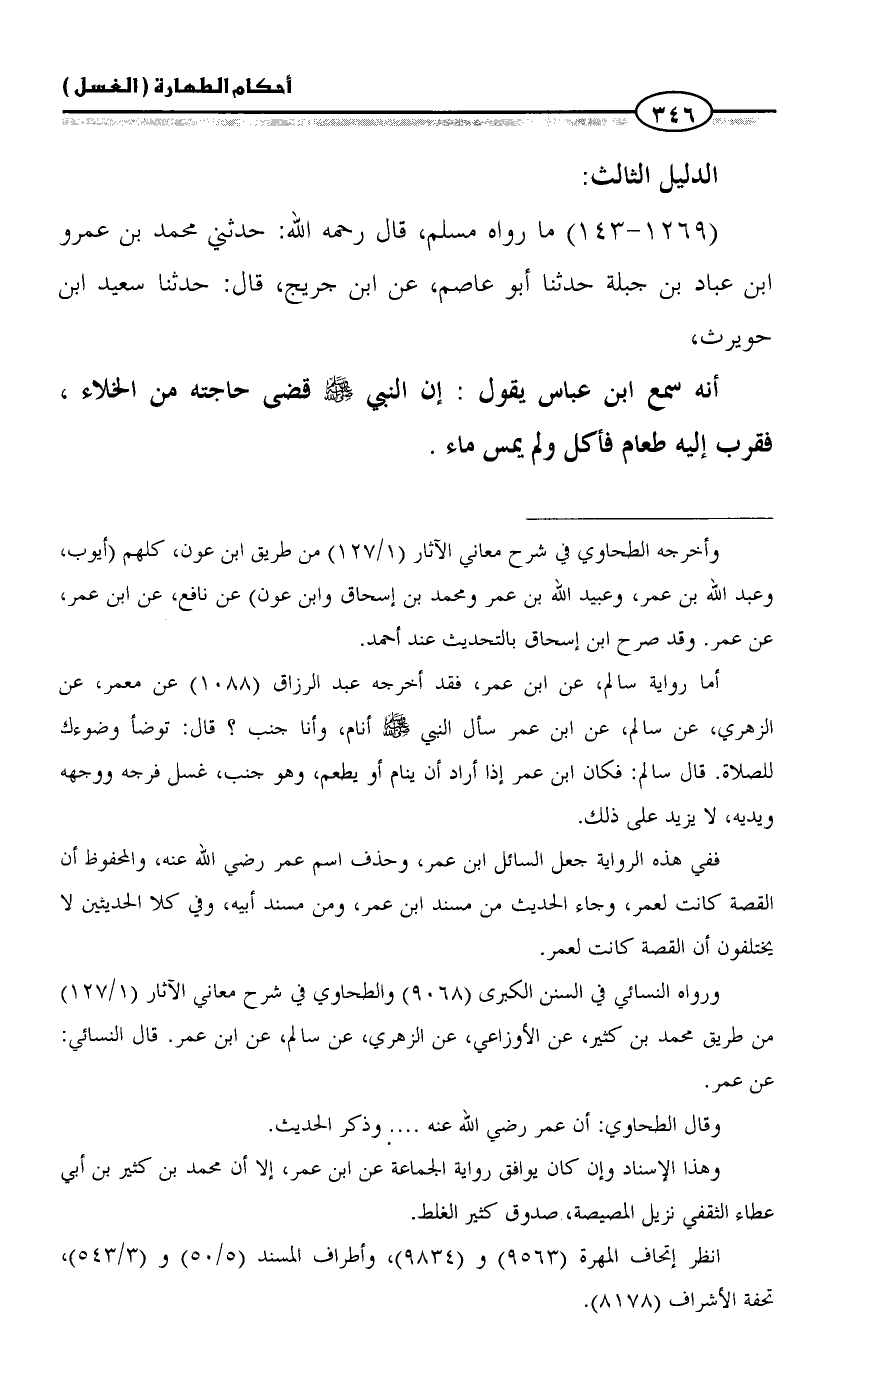 أحكام الطهارة (الغسل)
٣٤٦
الدليل الثالث:
(١٢٦٩-١٤٣) ما رواه مسلم، قال رحمه الله: حدثني محمد بن عمرو
ابن عباد بن جبلة حدثنا أبو عاصم، عن ابن جريج، قال: حدثنا سعيد ابن
حويرث،
أنه سمع ابن عباس يقول : إن النبي ﷺ قضى حاجته من الخلاء ،
فقرب إليه طعام فأكل ولم يمس ماء .
وأخرجه الطحاوي في شرح معاني الآثار (١٢٧/١) من طريق ابن عون، كلهم (أيوب،
وعبد الله بن عمر، وعبيد الله بن عمر ومحمد بن إسحاق وابن عون) عن نافع، عن ابن عمر،
عن عمر. وقد صرح ابن إسحاق بالتحديث عند أحمد.
أما رواية سالم، عن ابن عمر، فقد أخرجه عبد الرزاق (١٠٨٨) عن معمر، عن
الزهري، عن سالم، عن ابن عمر سأل النبي ﷺ أنام، وأنا جنب ؟ قال: توضأ وضوءك
للصلاة. قال سالم: فكان ابن عمر إذا أراد أن ينام أو يطعم، وهو جنب، غسل فرجه ووجهه
ويديه، لا يزيد على ذلك.
ففي هذه الرواية جعل السائل ابن عمر، وحذف اسم عمر رضي الله عنه، والمحفوظ أن
القصة كانت لعمر، وجاء الحديث من مسند ابن عمر، ومن مسند أبيه، وفي كلا الحديثين لا
يختلفون أن القصة كانت لعمر.
ورواه النسائي في السنن الكبرى (٩٠٦٨) والطحاوي في شرح معاني الآثار (١٢٧/١)
من طريق محمد بن كثير، عن الأوزاعي، عن الزهري، عن سالم، عن ابن عمر. قال النسائي:
عن عمر.
وقال الطحاوي: أن عمر رضي الله عنه .... وذكر الحديث.
وهذا الإسناد وإن كان يوافق رواية الجماعة عن ابن عمر، إلا أن محمد بن كثير بن أبي
عطاء الثقفي نزيل المصيصة، صدوق كثير الغلط.
انظر إتحاف المهرة (٩٥٦٣) و (٩٨٣٤)، وأطراف المسند (٥٠/٥) و (٥٤٣/٣)،
تحفة الأشراف (٨١٧٨).